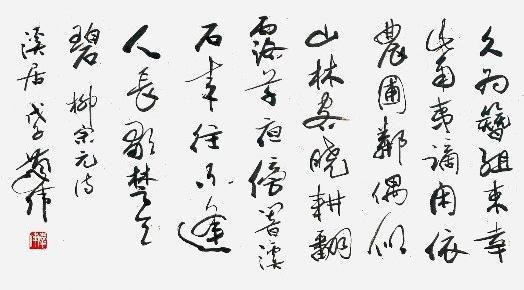 久为簪组束幸
此南夷谪闲依
農圃鄰偶似
山林客晓耕翻
露草夜傍響溪
石来往不逢
人長歌楚天
碧 柳宗元诗
溪居 戊子